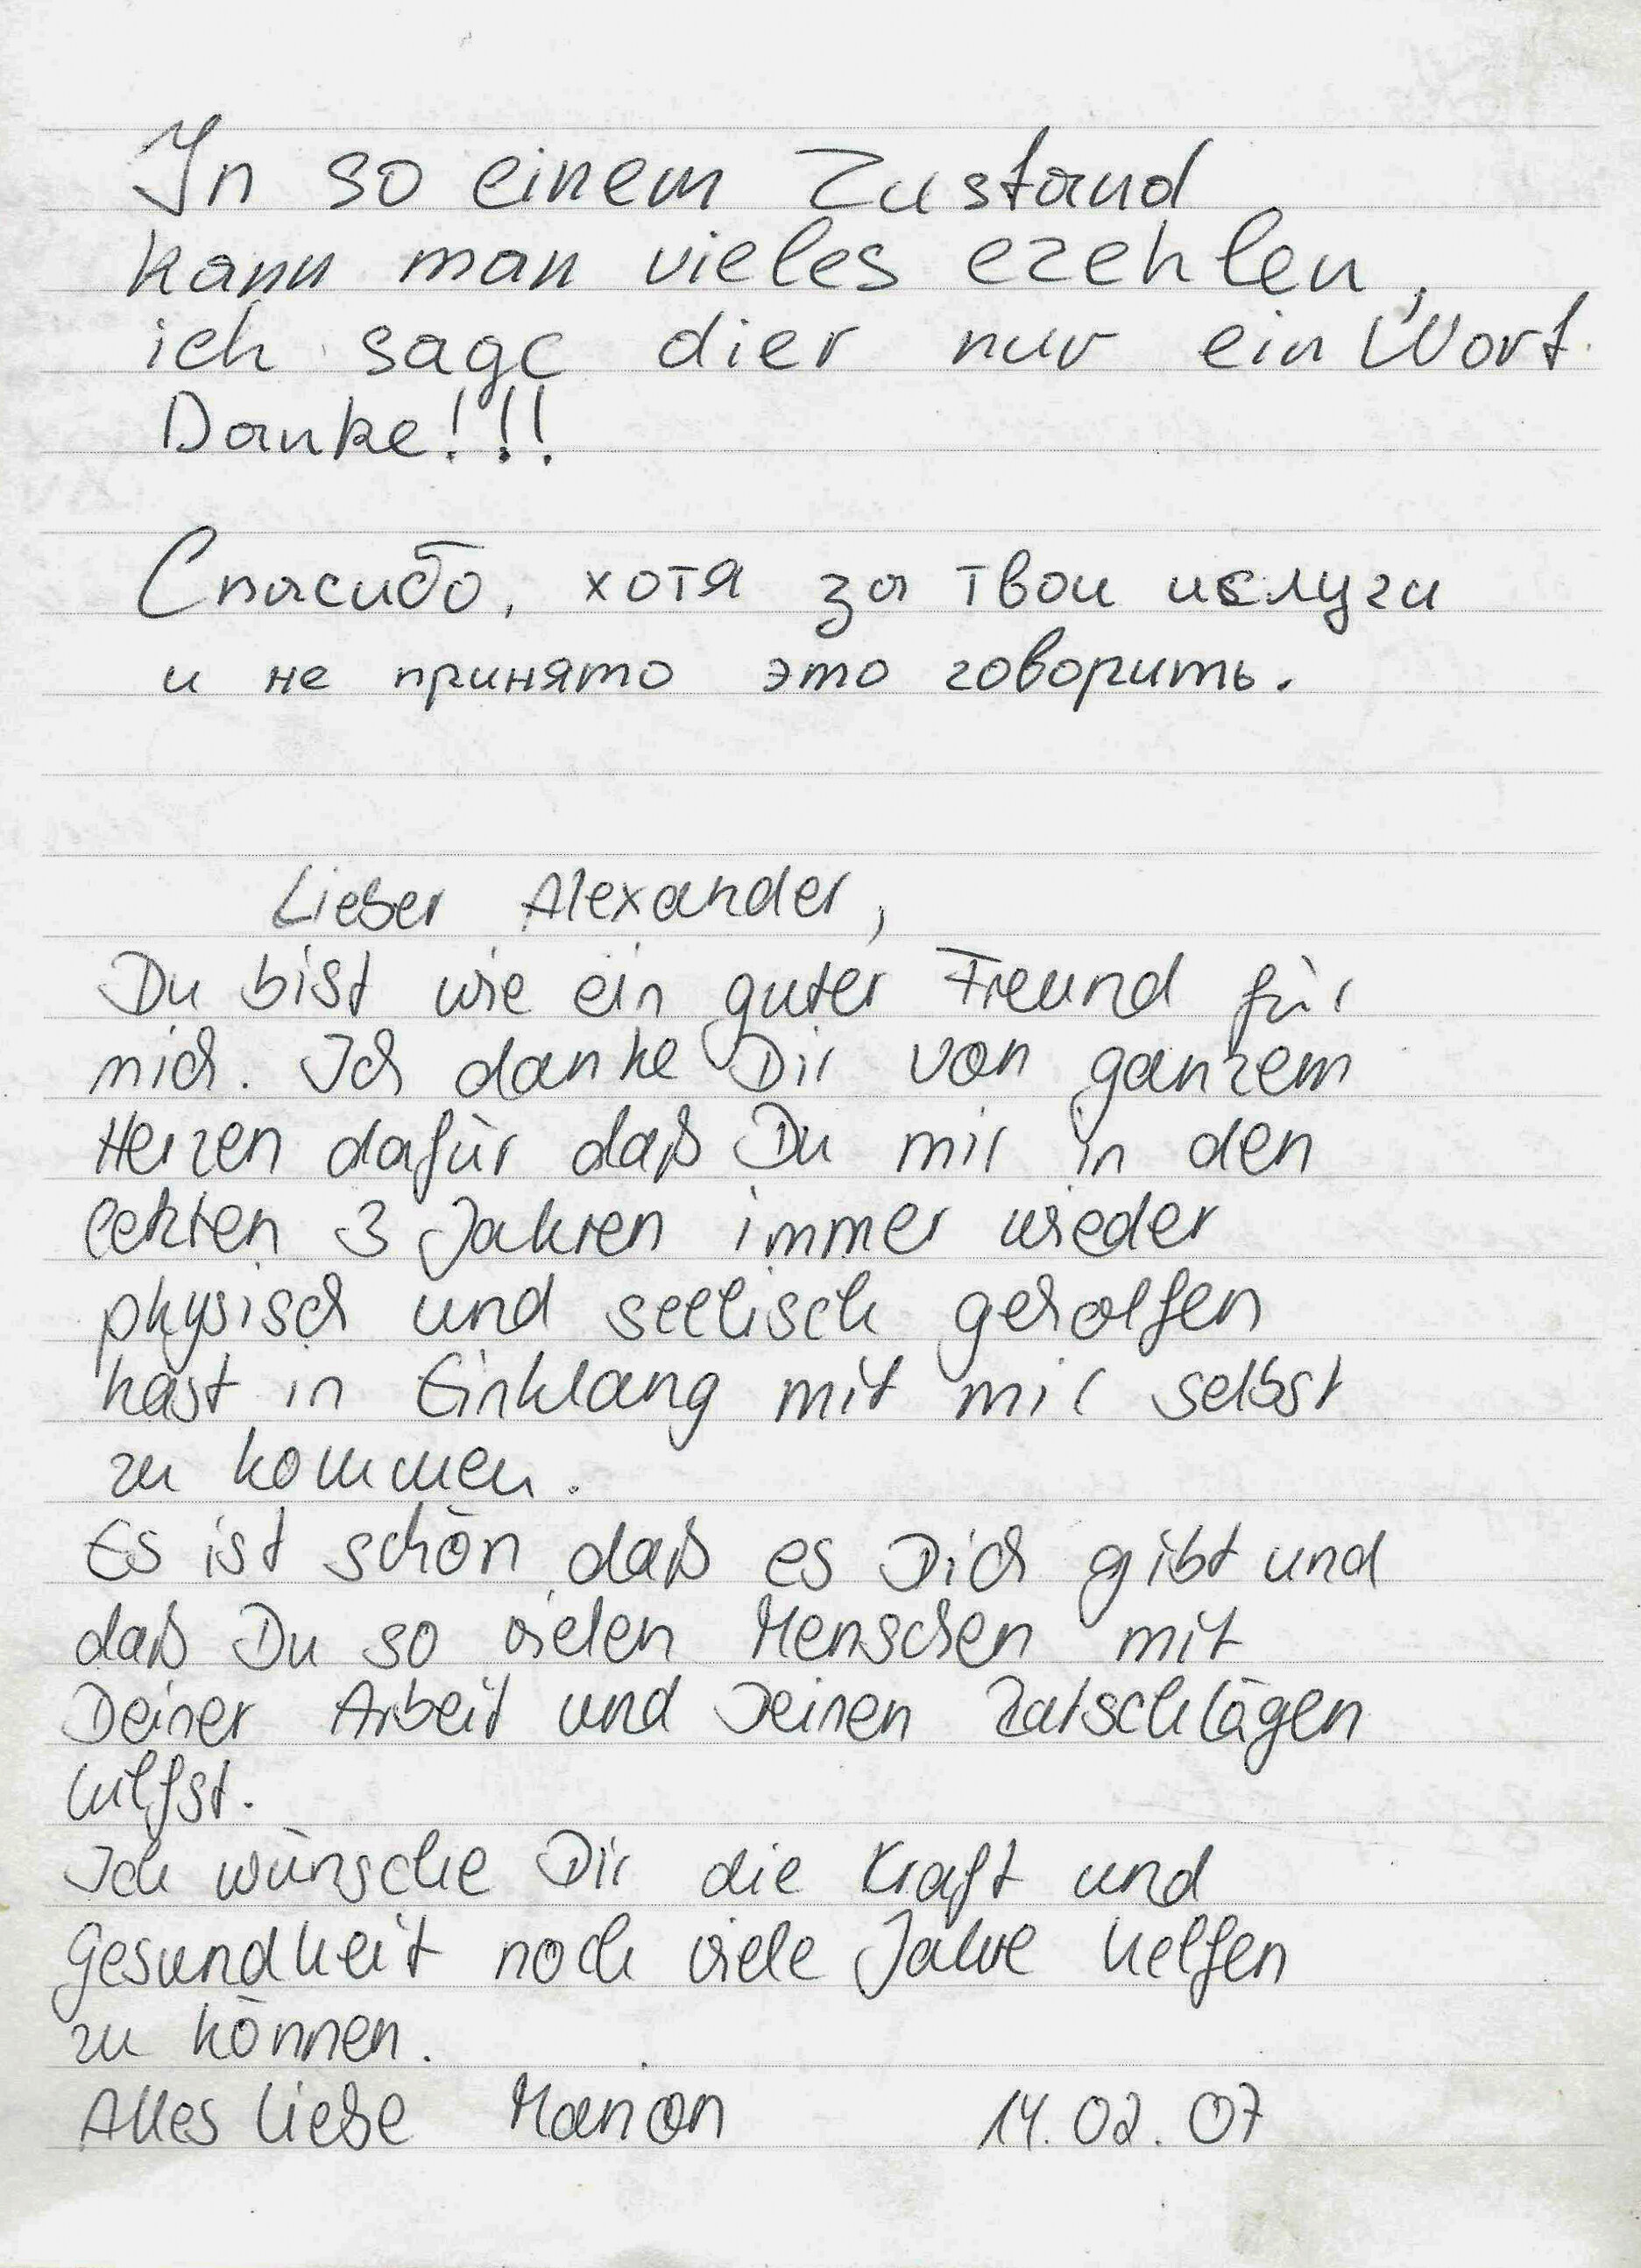 In so einem Zustand
kann man vieles ezehlen,
ich sage dier nur ein Wort
Danke!!!
Спасибо, хотя за твои ислуги
и не принято это говорить.
Lieber Alexander,
Du bist wie ein guter Freund für
mich. Ich danke Dir von ganzem
Herzen dafür daß Du mir in den
letzten 3 Jahren immer wieder
physisch und seelisch geholfen
hast in Einklang mit mir selbst
zu kommen.
Es ist schön, daß es Dich gibt und
daß Du so vielen Menschen mit
Deiner Arbeit und Deinen Ratschlägen
hilfst.
Ich wünsche Dir die Kraft und
Gesundheit noch viele Jahre helfen
zu können.
Alles Liebe Marion 14.02.07